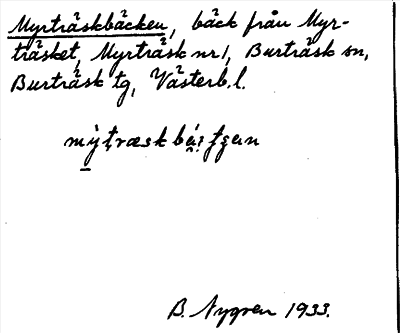 Myrträskbäcken, bäck från Myr-
träsket, Myrträsk nr 1, Burträsk sn,
Burträsk tg, Västerb. l.
B. Nygren 1933.